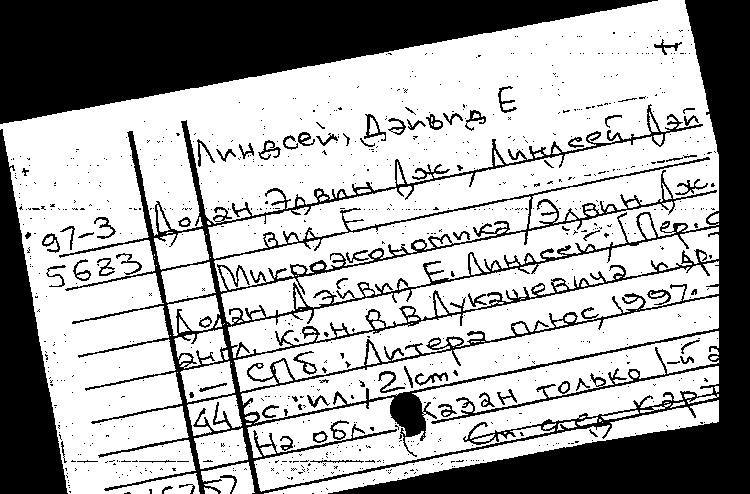 Линдсей, Дэйвид Е
Долан, Эдвин Дж., Линдсей, Дэй
97-3 вид Е.
5683 Микроэкономика / Эдвин Дж.
Долан, Дэйвид Е. Линдсей; [Пер. с
англ. к.э.н. В.В. Лукашевича и др.
. — СПб. : Литера плюс, 1997. —
446с. : ил.; 21cm.
На обл. казан только 1-й а
См. след карт